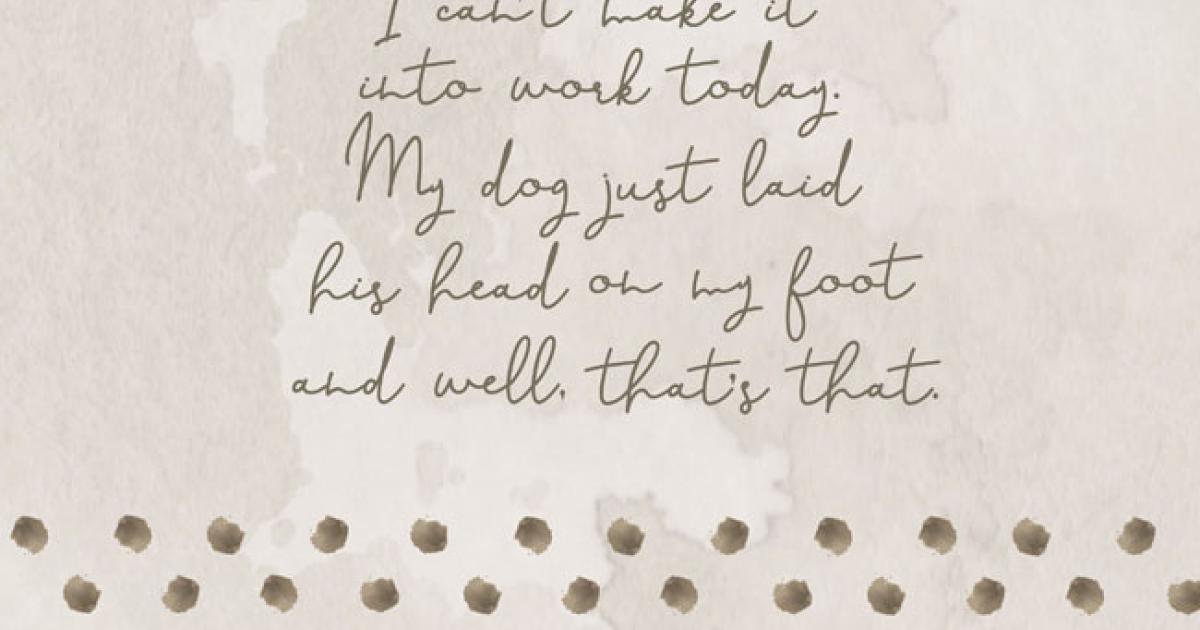 I can't make it
into work today.
My dog just laid
his head on my foot
and well, that's that.